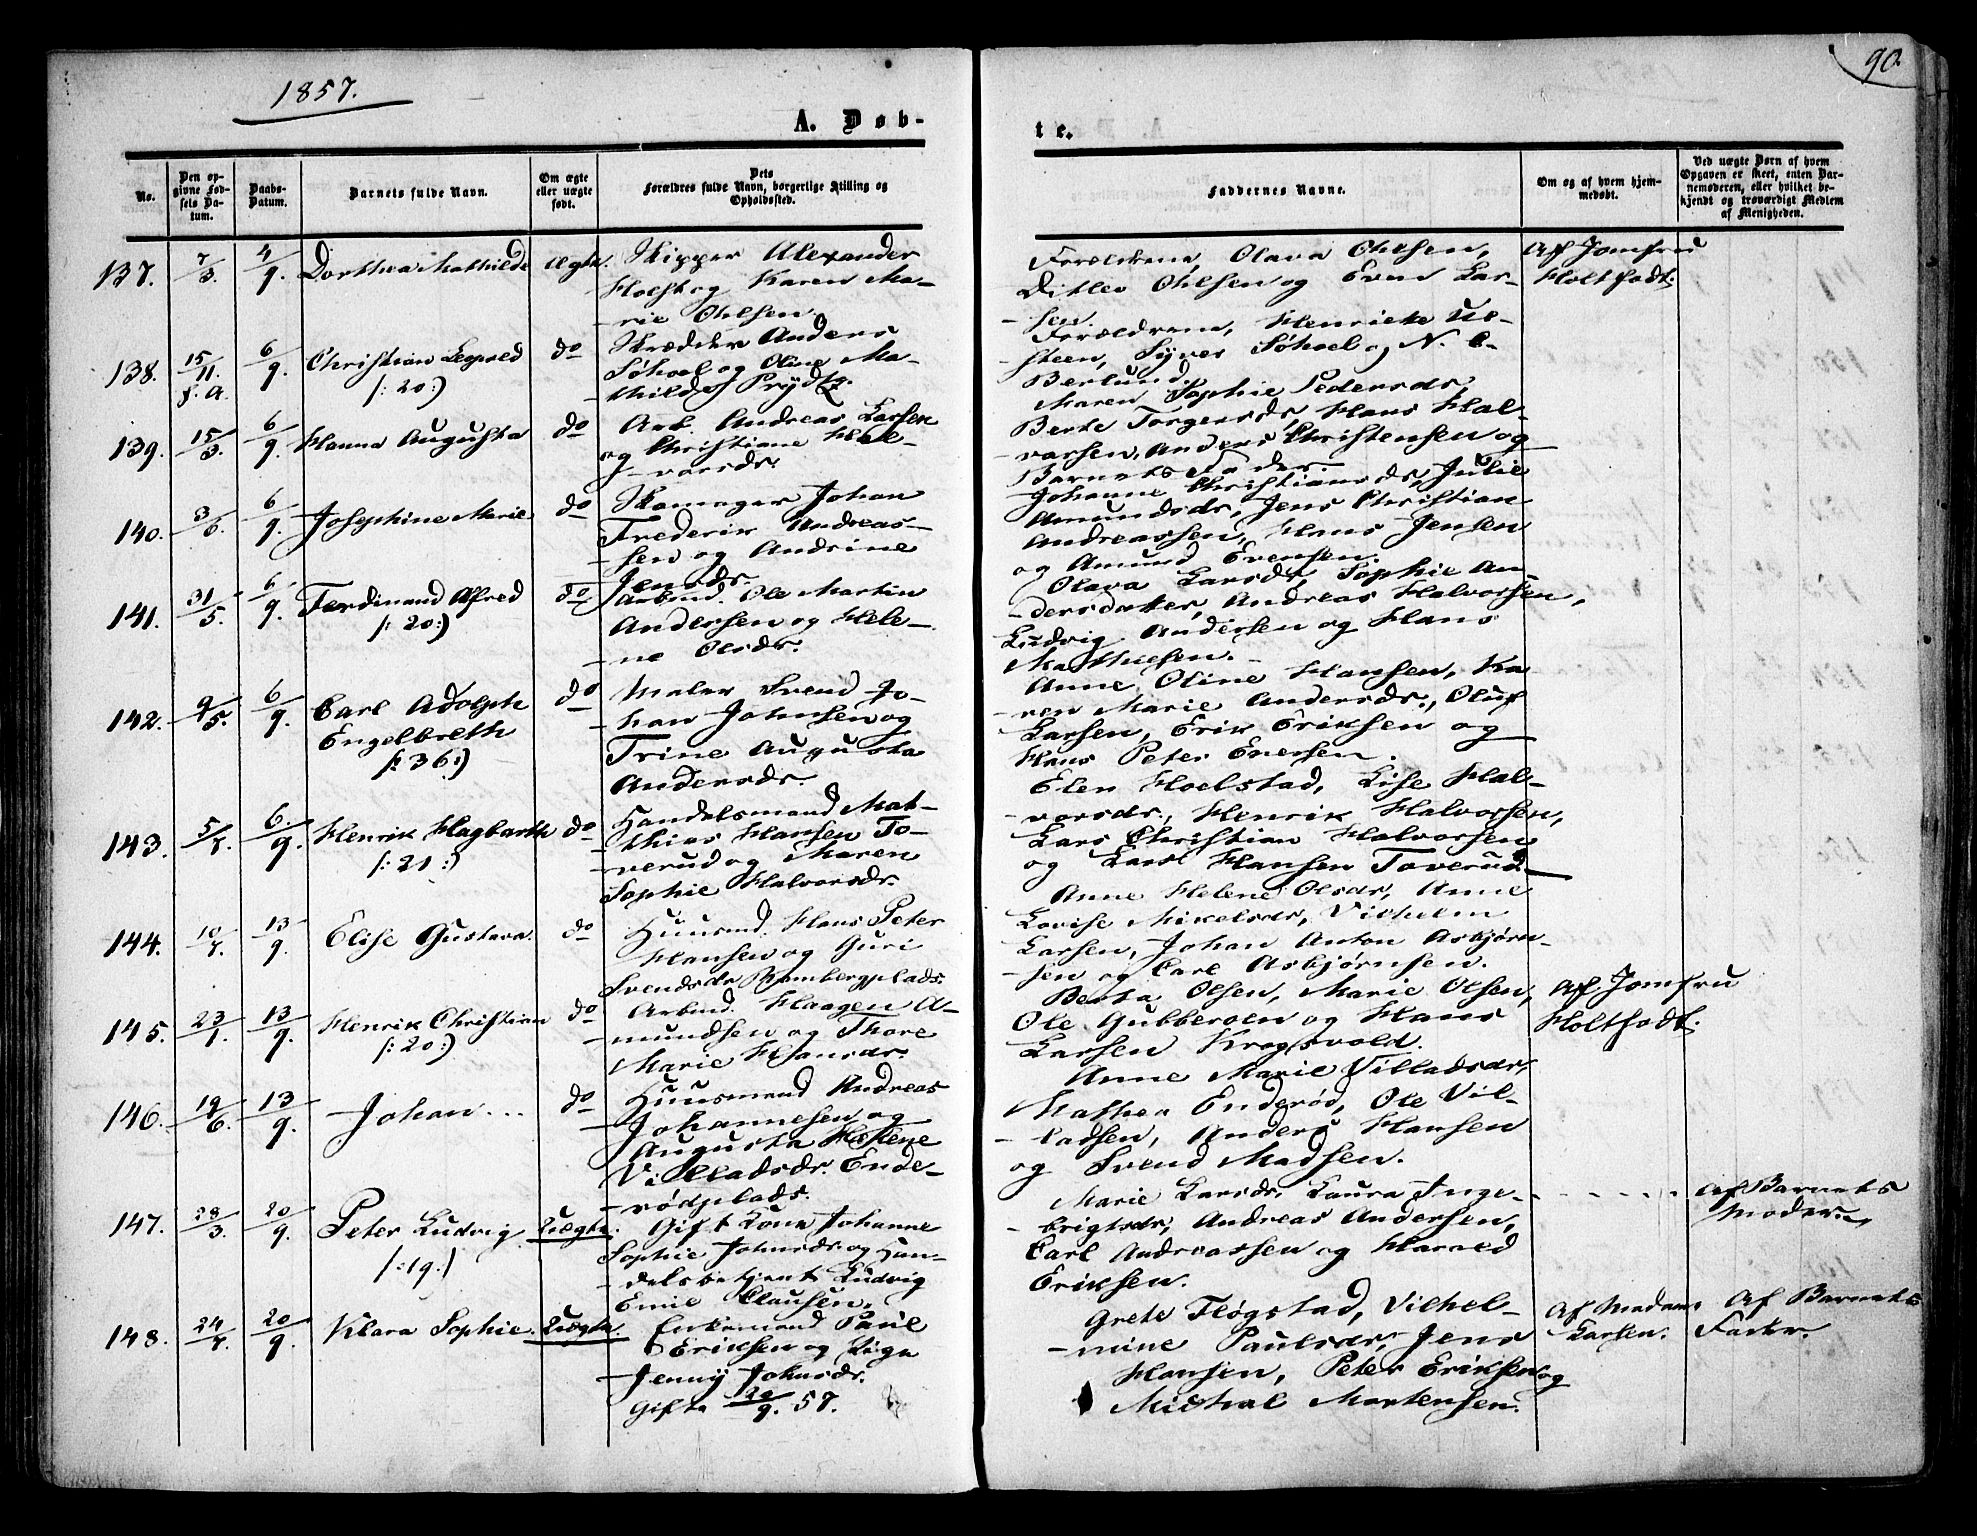 1857.
90.
A. Døb-
te.
No.
Den op-
givne Fød-
sels Da-
tum.
Daabs-
Datum.
Barnets fulde Navn.
Om ægte
eller uægte
født.
Dets
Forældres fulde Navn, borgerlige Stilling og
Opholdssted.
Faddernes Navne.
Om og af hvem hjem-
medøbt.
Ved uægte Børn af hvem
Opgaven er skeet, enten Bar-
nemoderen, eller hvilket be-
kjendt og troværdigt Medlem
af Menigheden.
137.
7/3.
4/9.
Dorthea Mathilde
ægte.
Skipper Alexander
Holst og Karen Ma-
-rie Ohlsen.
Forældrene, Olava Ohlsen,
Ditlev Ohlsen og Even Lar-
-sen.
Af Jomfru
Holtfodt.
138.
15/11.
f. A.
6/9.
Christian Leopold
/: 20:)
do
Skrædder Anders
Søhoel og Oline Ma-
-thilde Prydtz.
Forældrene, Henriette Ul-
-steen, Syver Søhoel og N. C.
Berlund.
139.
15/3.
6/9.
Hanna Augusta
do
Arb. Andreas Larsen
og Christiane Hal-
-vorsdr.
Maren Sophie Pedersdr,
Berte Torgersdr, Hans Hal-
-varsen, Anders Christensen og
Barnets Fader.
140.
3/6.
6/9.
Josephine Marie
do
Skomager Johan
Frederik Andreas-
-sen og Andrine
Jensdr.
Johanne Christiansdr, Julie
Amundsdr, Jens Christian
Andreassen, Hans Jensen
og Amund Evensen.
141.
31/5.
6/9.
Ferdinand Alfred
/: 20:)
do
Arbmd. Ole Martin
Andersen og Hele-
-ne Olsdr.
Olava Larsdr, Sophie An-
-dersdatter, Andreas Halvorsen,
Ludvig Andersen og Hans
Mathiesen.
142.
9/5.
6/9.
Carl Adolph
Engelbreth
/: 36:)
do
Maler Svend Jo-
-han Johnsen og
Trine Augusta
Andersdr.
Anne Oline Hansen, Ka-
-ren Marie Andersdr., Oluf
Larsen, Erik Eriksen og
Hans Peter Evensen.
143.
5/7.
6./9.
Henrik Hagbarth
/: 21:)
do
Handelsmand Mat-
-thias Hansen To-
-verud og Maren
Sophie Halvorsdr.
Elen Hoelstad, Lise Hal-
-vorsdr., Henrik Halvorsen,
Lars Christian Halvorsen
og Carl Hansen Toverud.
144.
10/7.
13/9.
Elise Gustava.
do
Huusmd. Hans Peter
Hansen og Guri
Svendsdr Rambergplads.
Anne Helene Olsdr, Anne
Lovise Mikelsdr, Vilhelm
Larsen, Johan Anton Asbjørn-
-sen og Carl Asbjørnsen.
145.
23/1.
13/9.
Henrik Christian
/: 20:)
do
Arbmd. Haagen A-
-mundsen og Thore
Marie Hansdr.
Berta Olsen, Marie Olsen,
Ole Gubberoen og Hans
Larsen Krogsvold.
Af Jomfru
Holtfodt.
146.
19/6.
13/9.
Johan...
do
Huusmand Andreas
Johannesen og
Augusta Helene
Villadsdr. Ende-
-rødplads.
Anne Marie Villadsdr,
Mathea Enderød, Ole Vil-
-ladsen, Anders Hansen
og Svend Madsen.
147.
28/3.
20/9.
Peter Ludvig
/: 19:/
Uægte.
Gift Kone Johanne
Sophie Johnsdr og Han-
-delsbetjent Ludvig
Emil Clausen.
Marie Larsdr, Laura Inge-
-brigtsdr, Andreas Andersen,
Carl Andreassen og Harald
Eriksen.
Af Barnets
Moder.
148.
24/7.
20/9.
Klara Sophie.
Uægte.
Enkemand Paul
Eriksen og Pige
Jenny Johnsdr.
Gifte 20/9. 57.
Grete Fløgstad, Vilhel-
-mine Paulsdr, Jens
Hansen, Peter Eriksen og
Michal Mortensen.
Af Madam
Larsen.
Af Barnets
Fader.